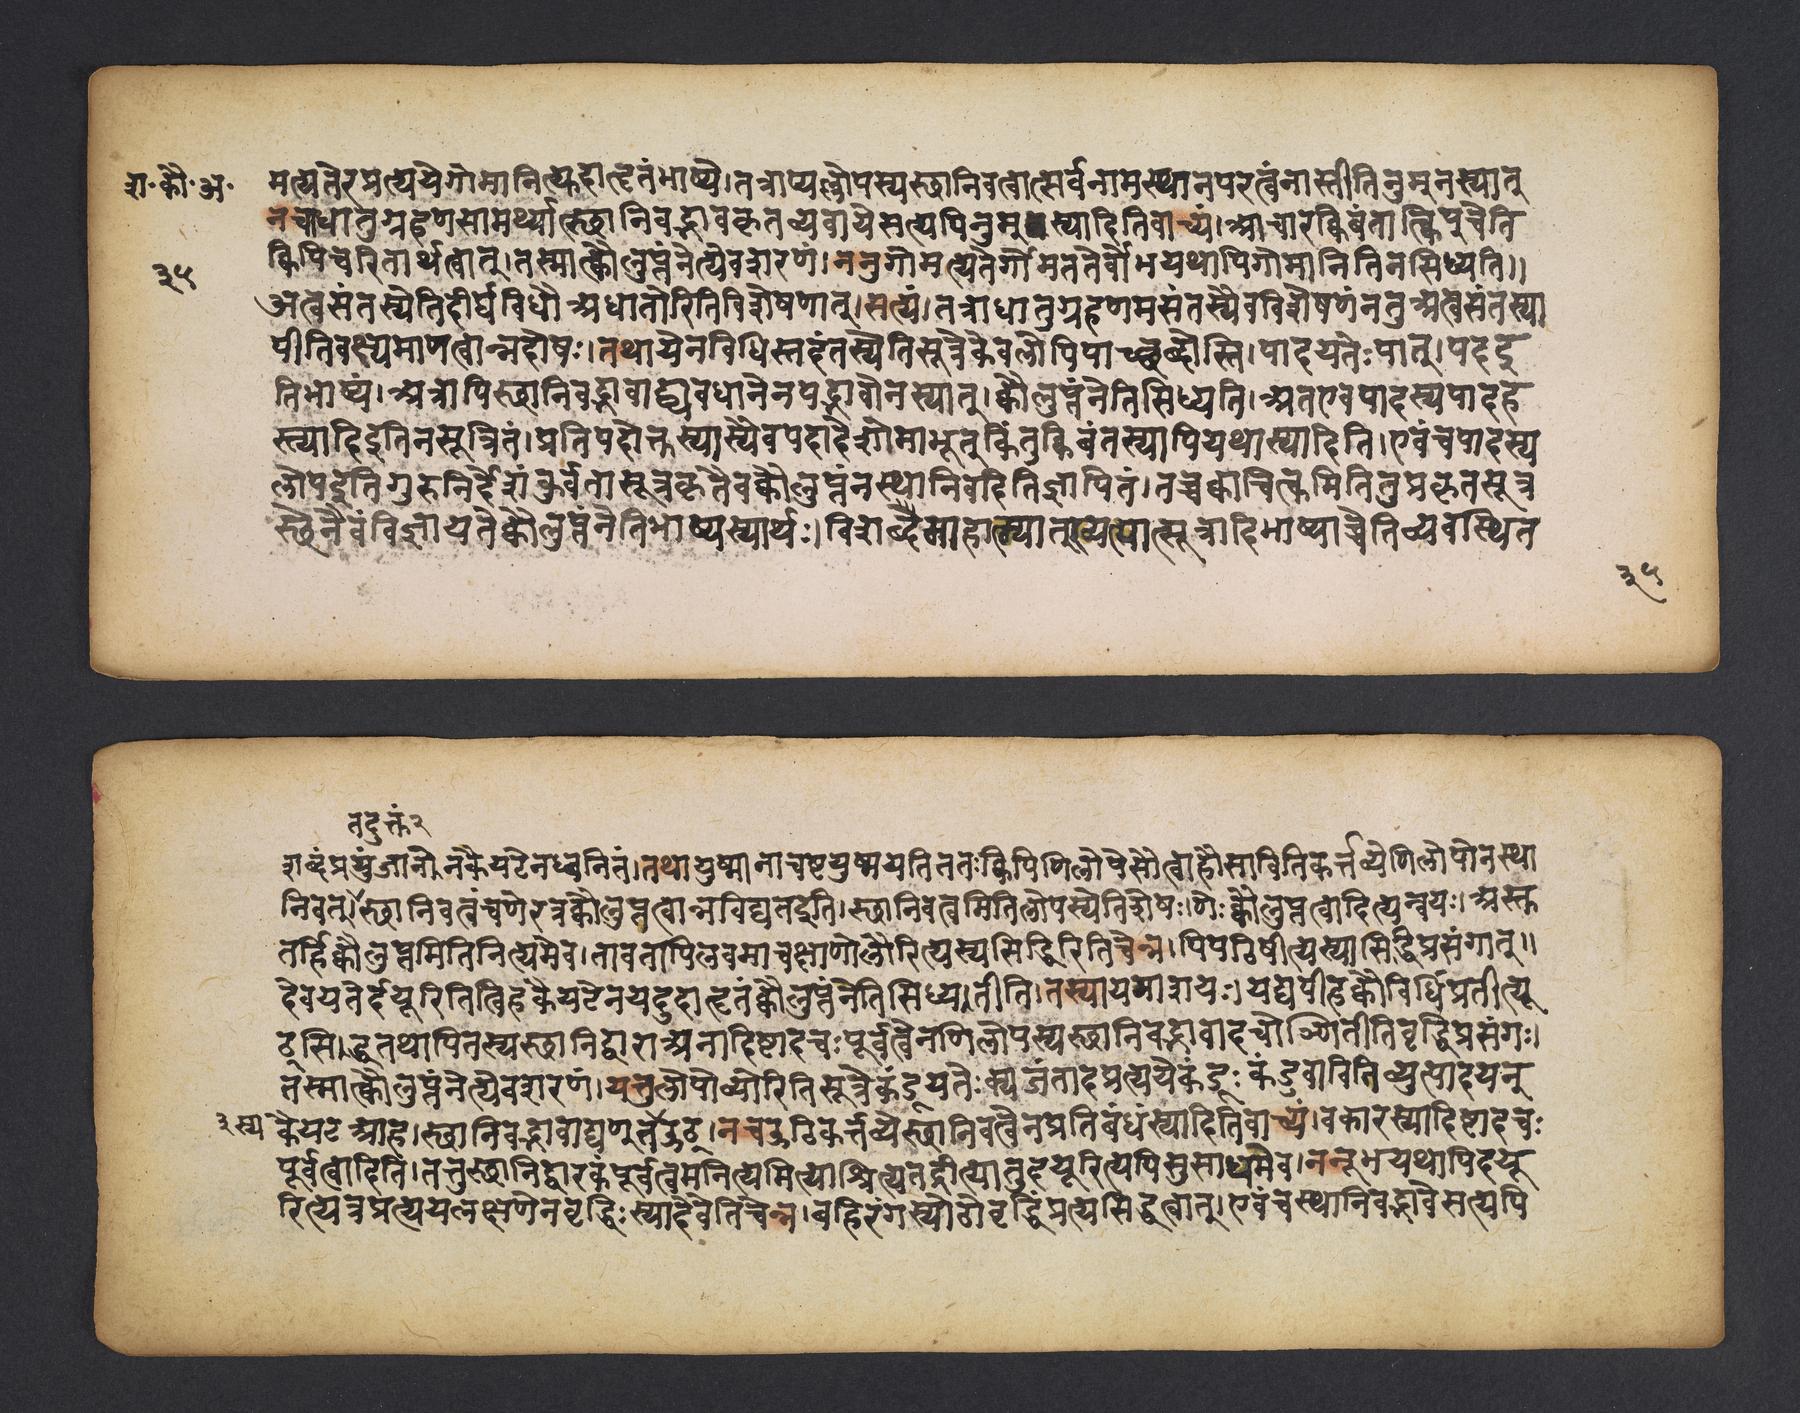 श· कौ· अ·
३५
मत्यतेरप्रत्यये गोमानित्युदाहृतं भाष्ये। तत्राप्यल्लोपस्य स्थानिवत्वात्सर्वनामस्थानपरत्वं नास्तीति नुम् न स्यात्
न चाधातुग्रहणसामर्थ्यात्स्थानिवद्भावकृतव्यवाये सत्यपि नुम् स्यादिति वाच्यं। आचारक्विबंतात्क्विपु चेति
क्विपि चरितार्थत्वात्। तस्मात्क्वौ लुप्तं नेत्येव शरणं। ननु गोमत्यतेर्गोमततेर्वोभयथापि गोमानिति न सिध्यति॥
अत्वसंतस्येति दीर्घविधौ अधातोरिति विशेषणात्। सत्यं। तत्राधातुग्रहणमसंतस्यैव विशेषणं न तु अत्वसंतस्या
पीति वक्ष्यमाणत्वान्न दोषः। तथा येन विधिस्तदंतस्येति सूत्रे केवलोपि पाच्छब्दोस्ति। पादयतेः पात्। पद इ
ति भाष्यं। अत्रापि स्थानिवद्भावाद्व्यवधानेन पद्भावो न स्यात्। क्वौ लुप्तं नेति सिध्यति। अत एव पादस्य पादह
स्त्यादिइति न सूत्रितं। प्रतिपदोक्तस्यास्यैव पदादेशो माभूत् किंतु क्विबंतस्यापि यथा स्यादिति। एवं च पादस्य
लोप इति गुरुनिर्देशं कुर्वता सूत्रकृतैव क्वौ लुप्तं न स्थानिवदिति ज्ञापितं। तच्च क्वाचित्कमिति तु प्रकृतसूत्र
स्थेनैवं विज्ञायते क्वौ लुप्तं नेति भाष्यस्यार्थः। विशब्दे माहात्म्यात् सूत्रादिभाष्याच्चेति व्यवस्थित
३५
तदुक्तं २
शब्दं प्रयुंजानेन कैयटेन ध्वनितं। तथा युष्मानाचष्टे युष्मयति ततः क्विपि णिलोपे सौ त्वाहौ साविति कर्त्तव्ये णिलोपो न स्था
निवत्। स्थानिवत्वं च णेरत्र क्वौ लुप्तत्वान्न विद्यत इति। स्थानिवत्वमिति लोपस्येति शेषः। णेः क्वौ लुप्तत्वादित्यन्वयः। अस्तु
तर्हि क्वौ लुप्तमिति नित्यमेव। तावतापि लवमाचक्षाणो लौरित्यस्य सिद्धिरिति चेन्न। पिपठिषीत्यस्यासिद्धिप्रसंगात्॥
देवयतेर्दयूरिति त्विह कैयटेन यदुदाहृतं क्वौ लुप्तं नेति सिध्यतीति। तस्यायमाशयः। यद्यपीह क्वौ विधिं प्रतीत्यू
ठ् सिद्धतथापि तस्य स्थानिद्वारा अनादिष्टादचः पूर्वत्वेन णिलोपस्य स्थानिवद्भावादचो ञ्णितीति वृद्धिप्रसंगः।
तस्मात्क्वौ लुप्तं नेत्येव शरणं। यत्तु लोपो व्योरिति सूत्रे कंडूयतेः क्यजंतादप्रत्यये कंडूः कंडुवाविति व्युत्पादयन्
३ स्य
कैयट आह। स्थानिवद्भावाद्यण् उठ्। न च उठि कर्त्तव्ये स्थानिवत्वेन प्रतिबंधं स्यादिति वाच्यं। वकारस्यादिष्टादचः
पूर्वत्वादिति। तत्तु स्थानिद्वारकं पूर्वत्वमनित्यमित्याश्रित्येतद्रीत्या तु दयूरित्यपि सुसाधमेव। ननूभयथापि दयू
रित्यत्र प्रत्ययलक्षणेन वृद्धिः स्यादेवेति चेन्न। बहिरंगस्योठो वृद्धिं प्रत्यसिद्धत्वात्। एवं च स्थानिवद्भावे सत्यपि